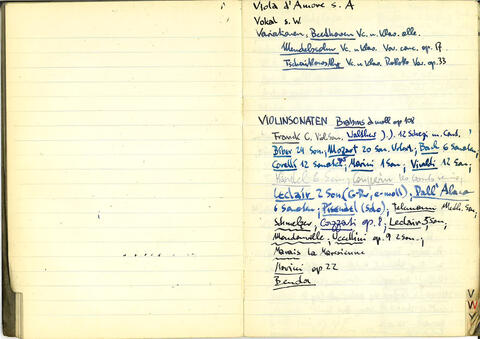 Viola d'Amore s. A
Vokal s. W
Variationen, Beethoven Vc. u. Klav. alle.
Mendelssohn Vc. u. Klav. Var. conc. op. 17
Vc. u. Klav. Rokoko Var. op. 33
VIOLINSONATEN Brahms d moll op 108
Franck C. Viol. Son. Walther J. J. 12 Scherzi m. Cont.
Biber 24 Son, Mozart 20 Son. Bach 6 Sonaten,
Corelli 12 Marini 1 Son, Vivaldi 12 Son,
6 Son, Couperin
Leclair 2 Son (G-Dur, e-moll), Dall' Abaco
6 Sonaten, Pisendel (Solo), Telemann Meth. Son,
Schmelzer, Cazzati op. 8, Leclair 5 Son,
Mondonville, Uccellini op. 9 2 Son.,
Marais La Maresienne
Marini op. 22
Benda
V
W
Y